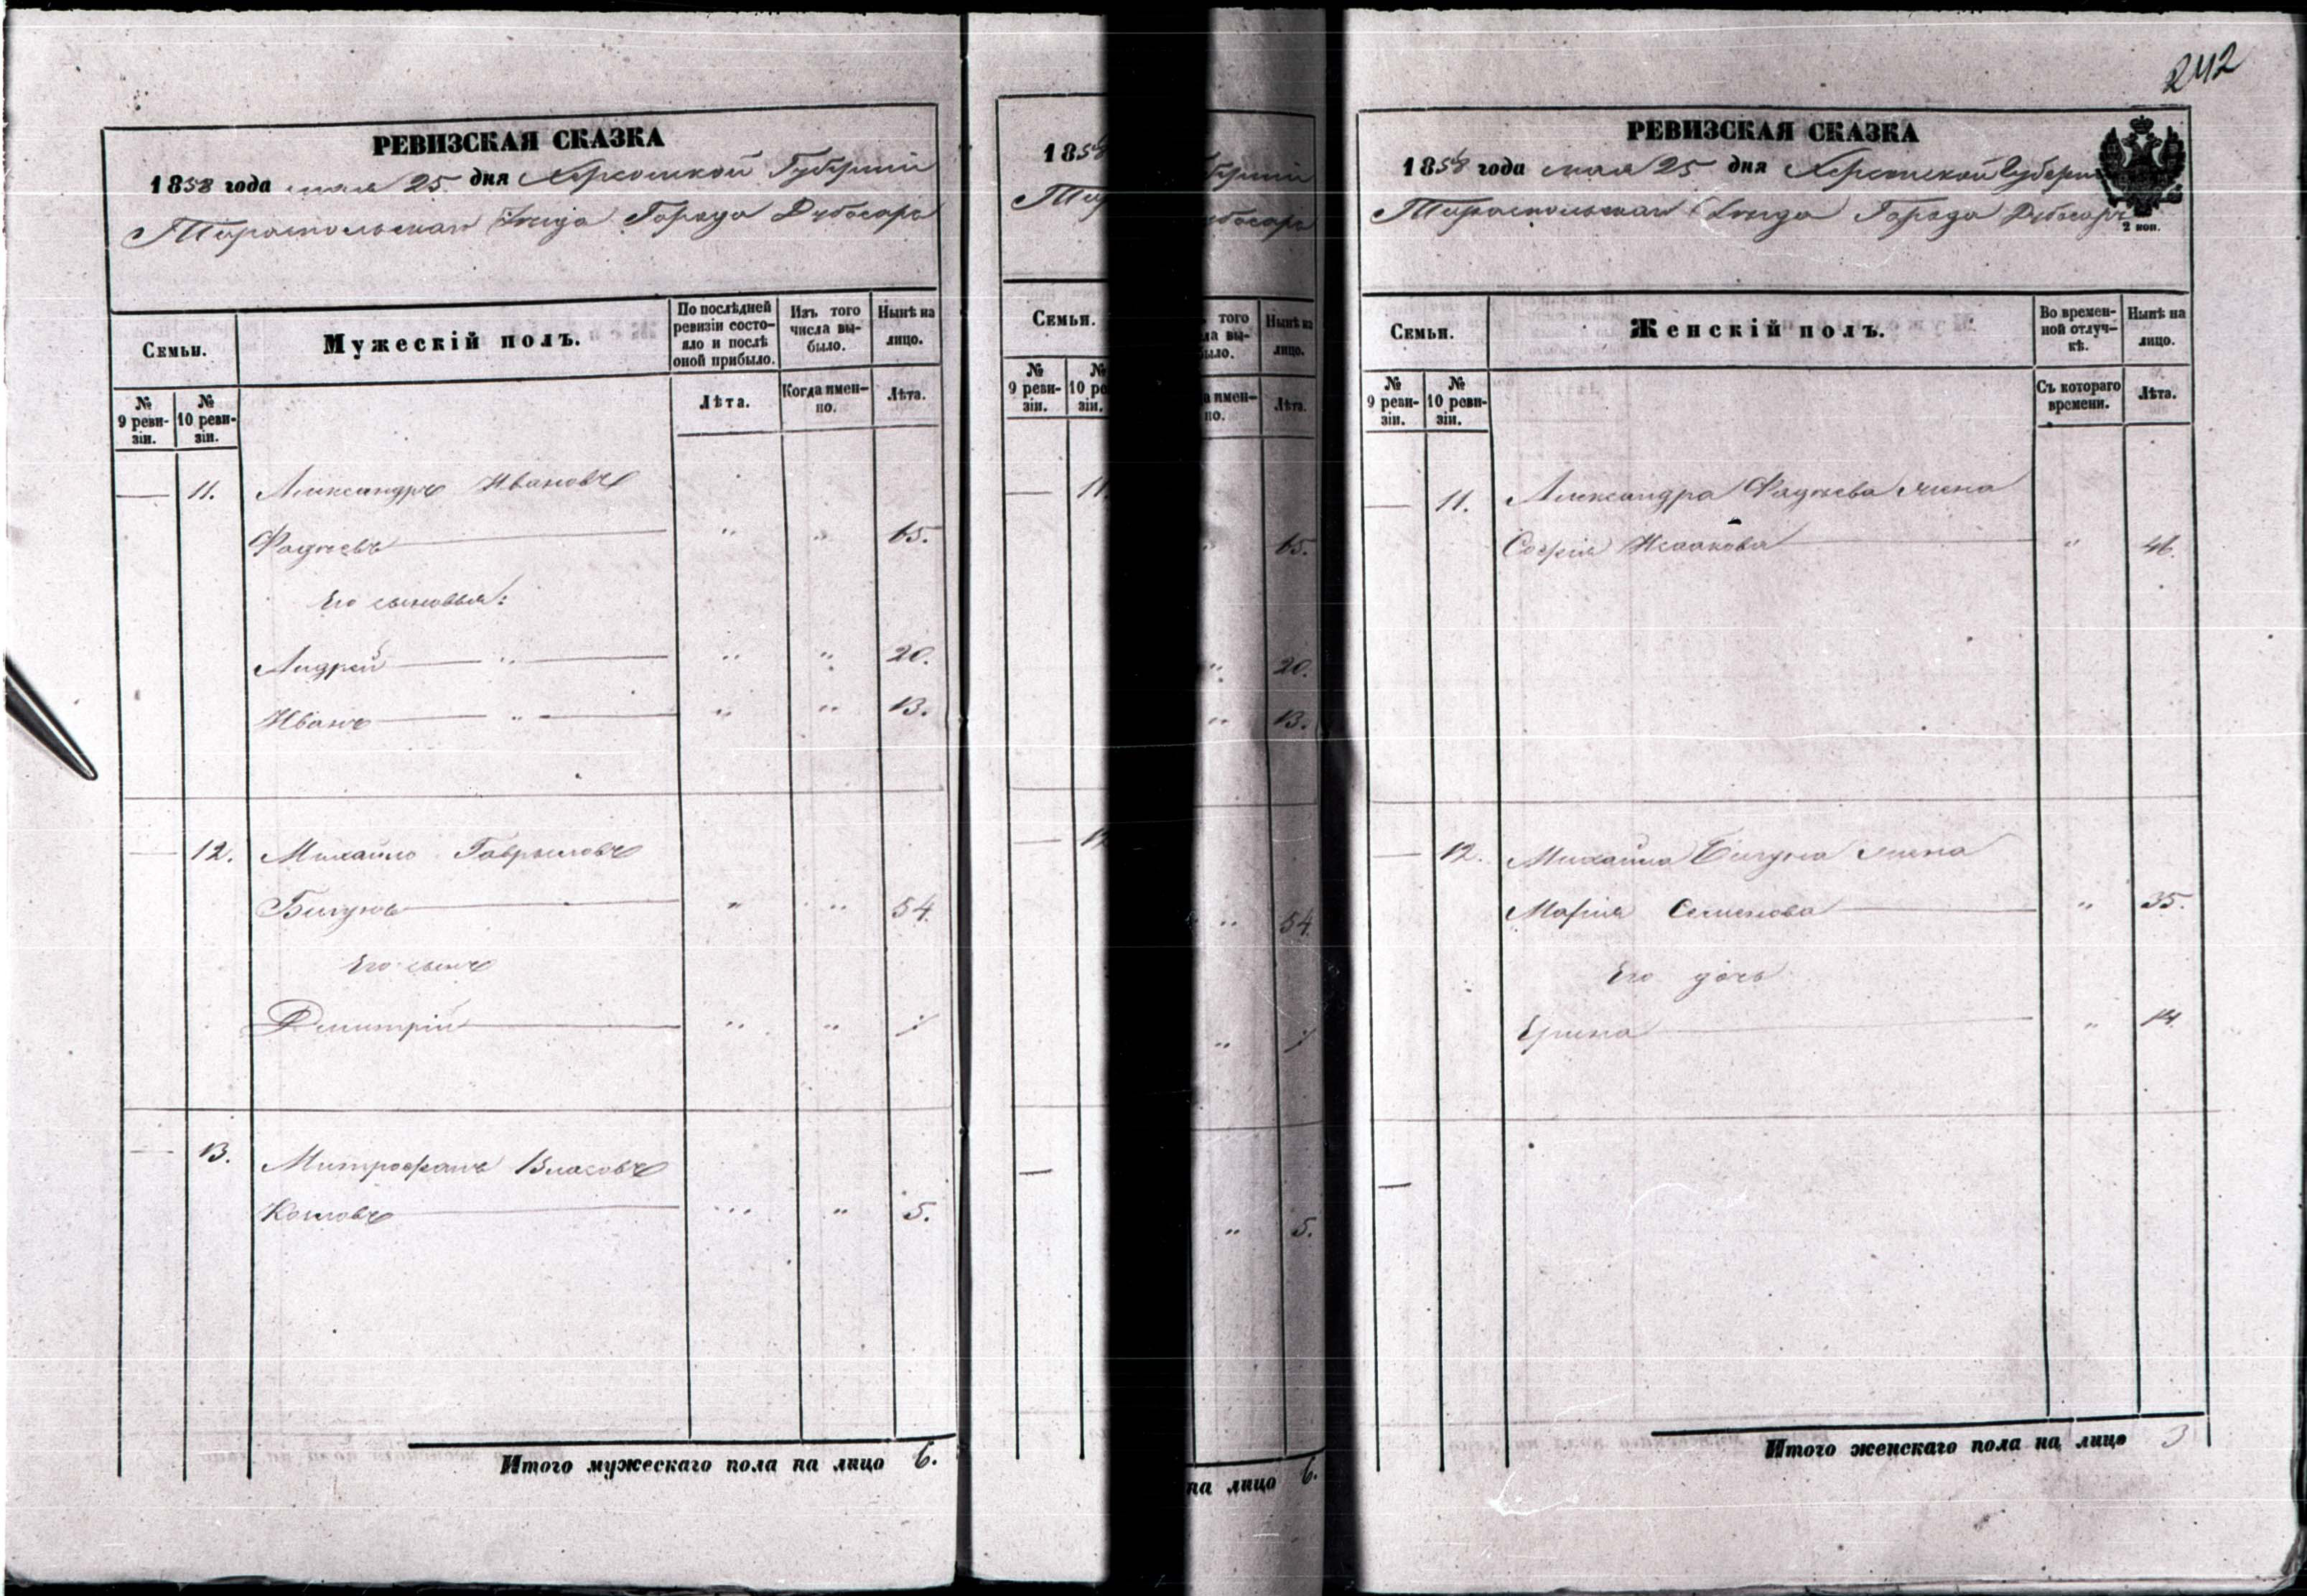 РЕВИЗСКАЯ СКАЗКА
1858 года мая 25 дня Херсонской Губерніи
Тираспольскаго Уезда Города Дубосаръ
Семьи.
Мужескій полъ.
По послѣдней ревизіи состояло и послѣ оной прибыло.
Изъ того числа выбыло.
Нынѣ на лицо.
№ 9 ревизіи.
№ 10 ревизіи.
Лѣта.
Когда именно.
Лѣта.
— 11. Александръ Ивановъ
Фадѣевъ " " 65.
Его сыновья:
Андрей — " — " " 20.
Иванъ — " — " " 13.
— 12. Михайло Гавриловъ
Бигунъ " " 54.
Его сынъ
Дмитрій " "
— 13. Митрофанъ Власовъ
Козловъ " " 5.
Итого мужескаго пола на лицо 6.
1858
Семьи.
№ 9 ревизіи.
того
Нынѣ на лицо.
Лѣта.
— 11
" 65.
" 20.
" 13.
" 54.
"
" 5.
на лицо 6.
242
РЕВИЗСКАЯ СКАЗКА
1858 года мая 25 дня Херсонской Губерніи
Тираспольскаго Уезда Города Дубосаръ
2 коп.
Семьи.
Женскій полъ.
Во временной отлучкѣ.
Нынѣ на лицо.
№ 9 ревизіи.
№ 10 ревизіи.
Съ котораго времени.
Лѣта.
— 11. Александра Фадѣева жена
Софія Исаакова " 46.
— 12. Михайла Бигуна жена
Марія Семенова " 35.
Его дочь
Ирина " 14.
—
Итого женскаго пола на лицо 3